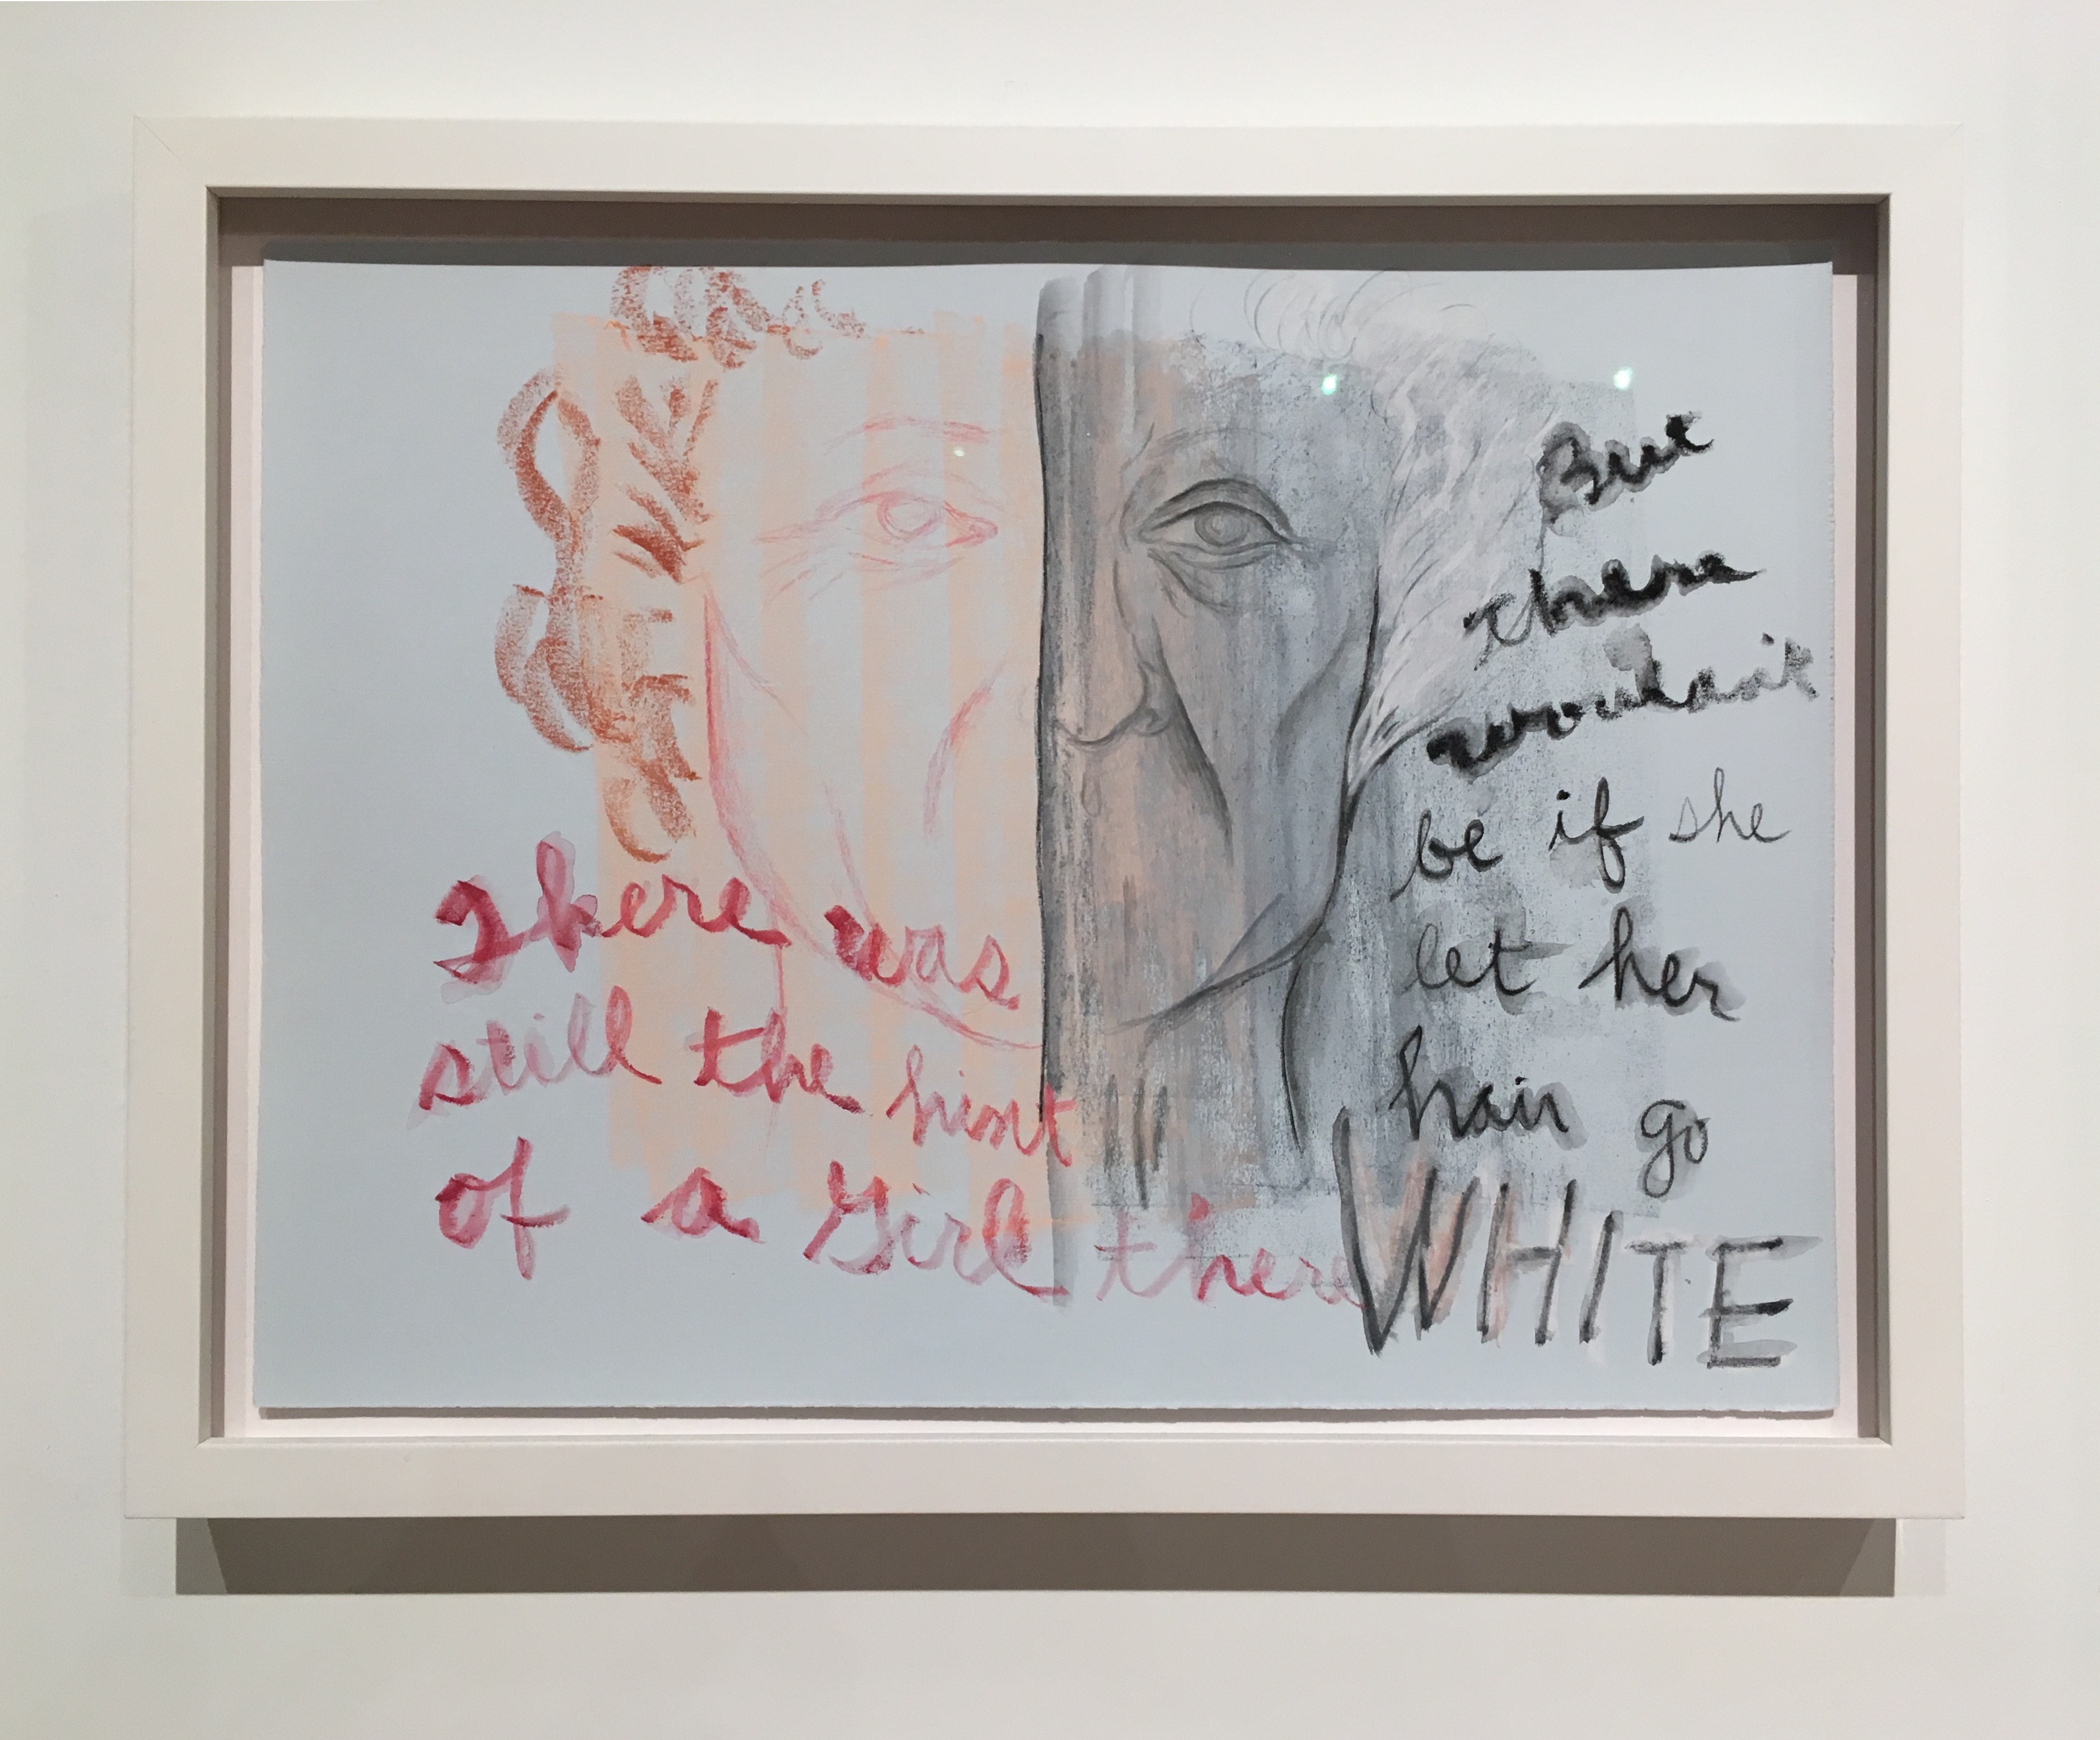 There was
still the hint
of a Girl there
But
there
wouldn't
be if she
let her
hair go
WHITE